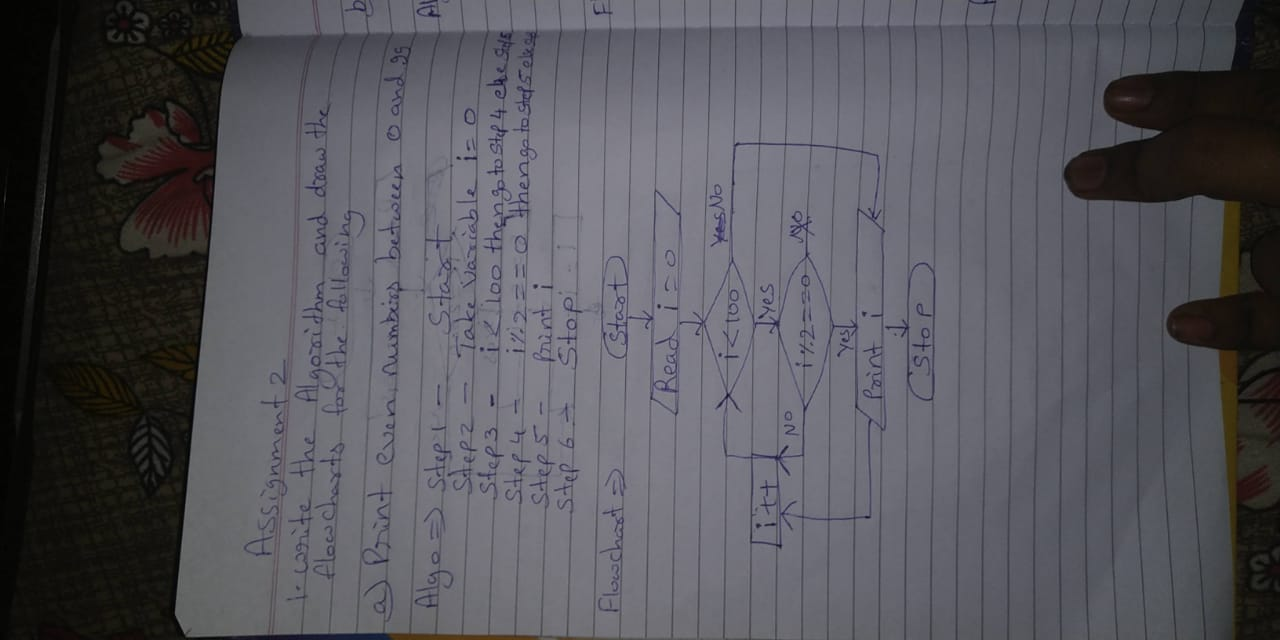 Assignment 2
1. write the Algorithm and draw the
flowcharts for the following
a) Print even numbers between 0 and 99
Algo => Step 1 - Start
Step 2 - Take variable i = 0
Step 3 - i < 100 then go to step 4 else
Step 4 - i%2 === 0 then go to step 5 else
Step 5 - Print i
Step 6 => Stop
Flowchart => (Start)
Read i = 0
i < 100
No
Yes
i%2 === 0
No
No
Yes
i++
Print i
Stop